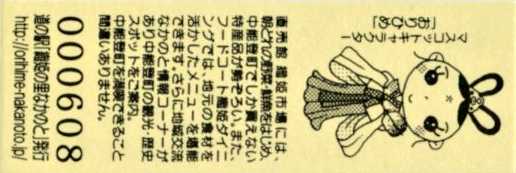 マスコットキャラクター
「おりひめ」
直売館 織姫市場には、
朝どれの野菜・鮮魚をはじめ、
中能登町でしか買えない
特産品が勢ぞろい。また、
フードコート織姫ダイニ
ングでは、地元の食材を
活かしたメニューを堪能
できます。さらに地域交流
なかのと情報コーナーが
あり中能登町の観光・歴史
スポットをご案内。
中能登町を満喫できること
間違いありません。
0000608
道の駅「織姫の里なかのと」発行
http://orihime-nakanoto.jp/